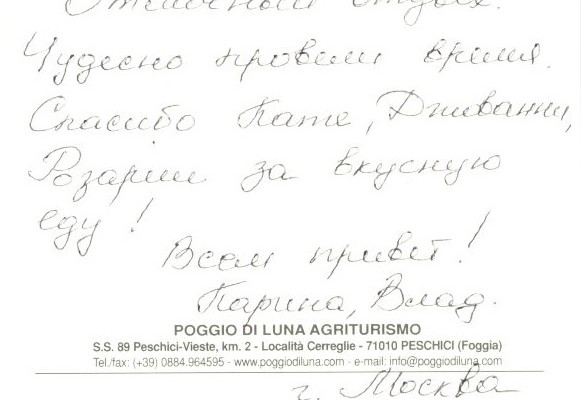 Отличный отдых.
Чудесно провели время.
Спасибо Кате, Дживанни,
Розарии за вкусную
еду!
Всем привет!
Карина, Влад.
POGGIO DI LUNA AGRITURISMO
S.S. 89 Peschici-Vieste, km. 2 - Località Cerreglie - 71010 PESCHICI (Foggia)
Tel./fax: (+39) 0884.964595 - www.poggiodiluna.com - e-mail: info@poggiodiluna.com
г. Москва